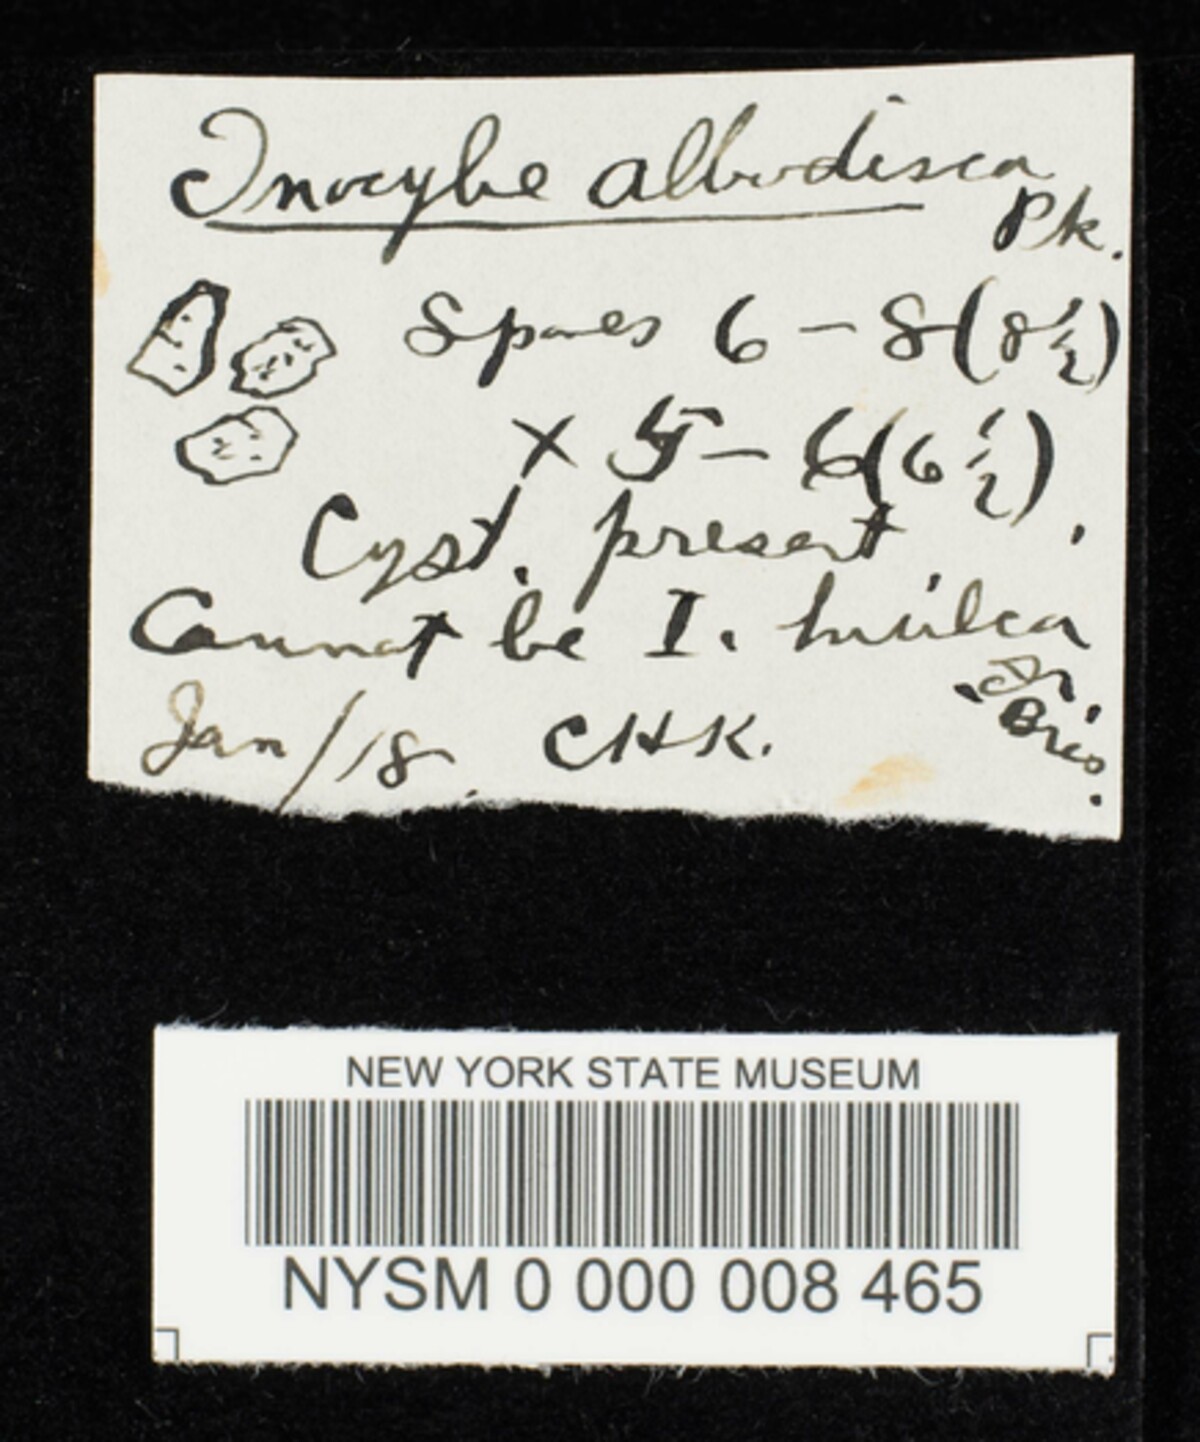 Inocybe albodisca
Pk.
Spores 6 - 8 (8 1/2)
x 5 - 6 (6 1/2).
Cyst. present
Cannot be I.
Jan/18. CHK.
NEW YORK STATE MUSEUM
NYSM 0 000 008 465